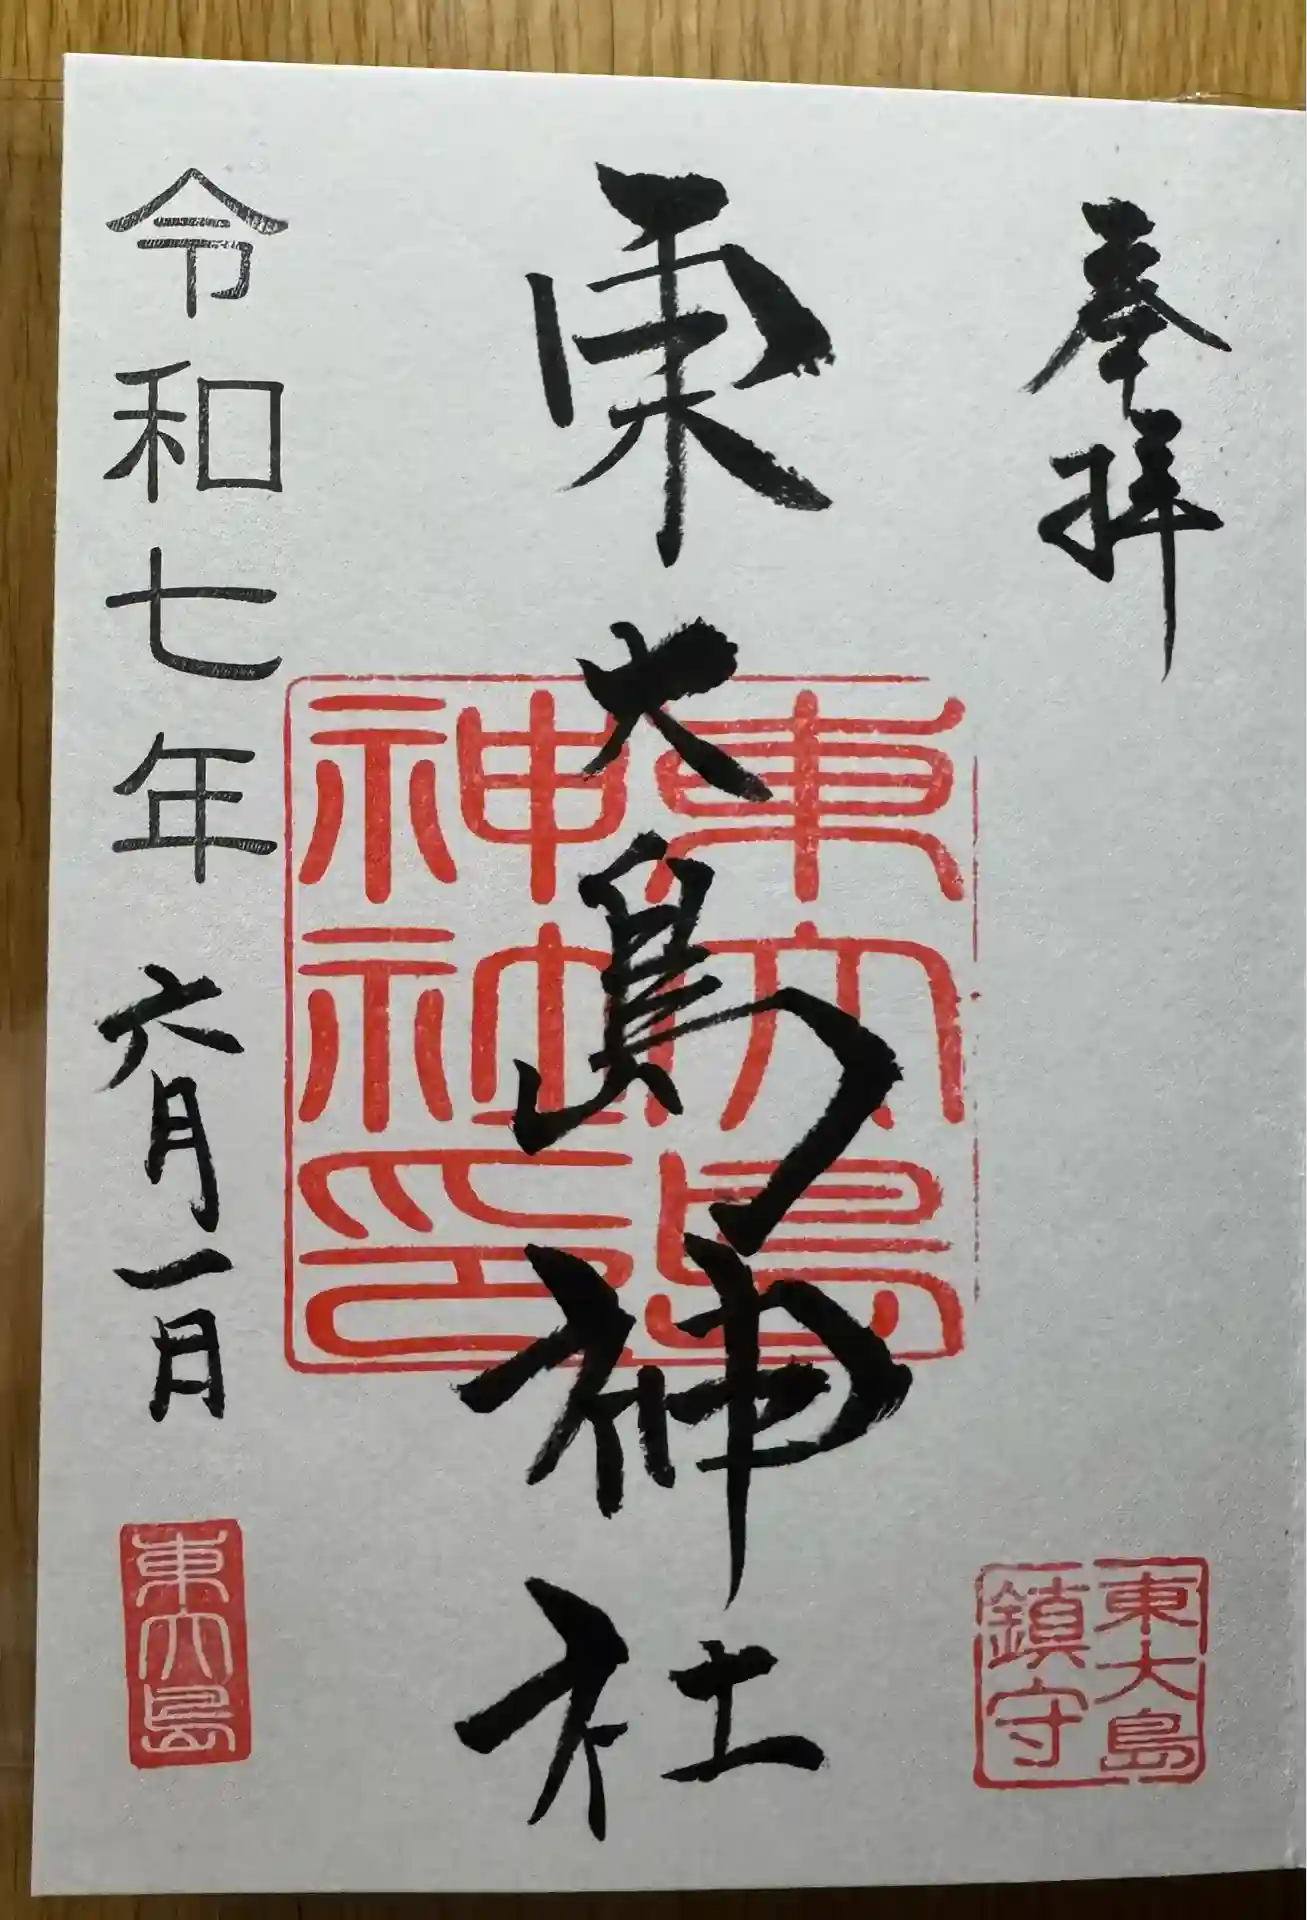 奉拝
東大島鎮守
東大島神社
東大島
神社印
令和七年六月一日
東大島